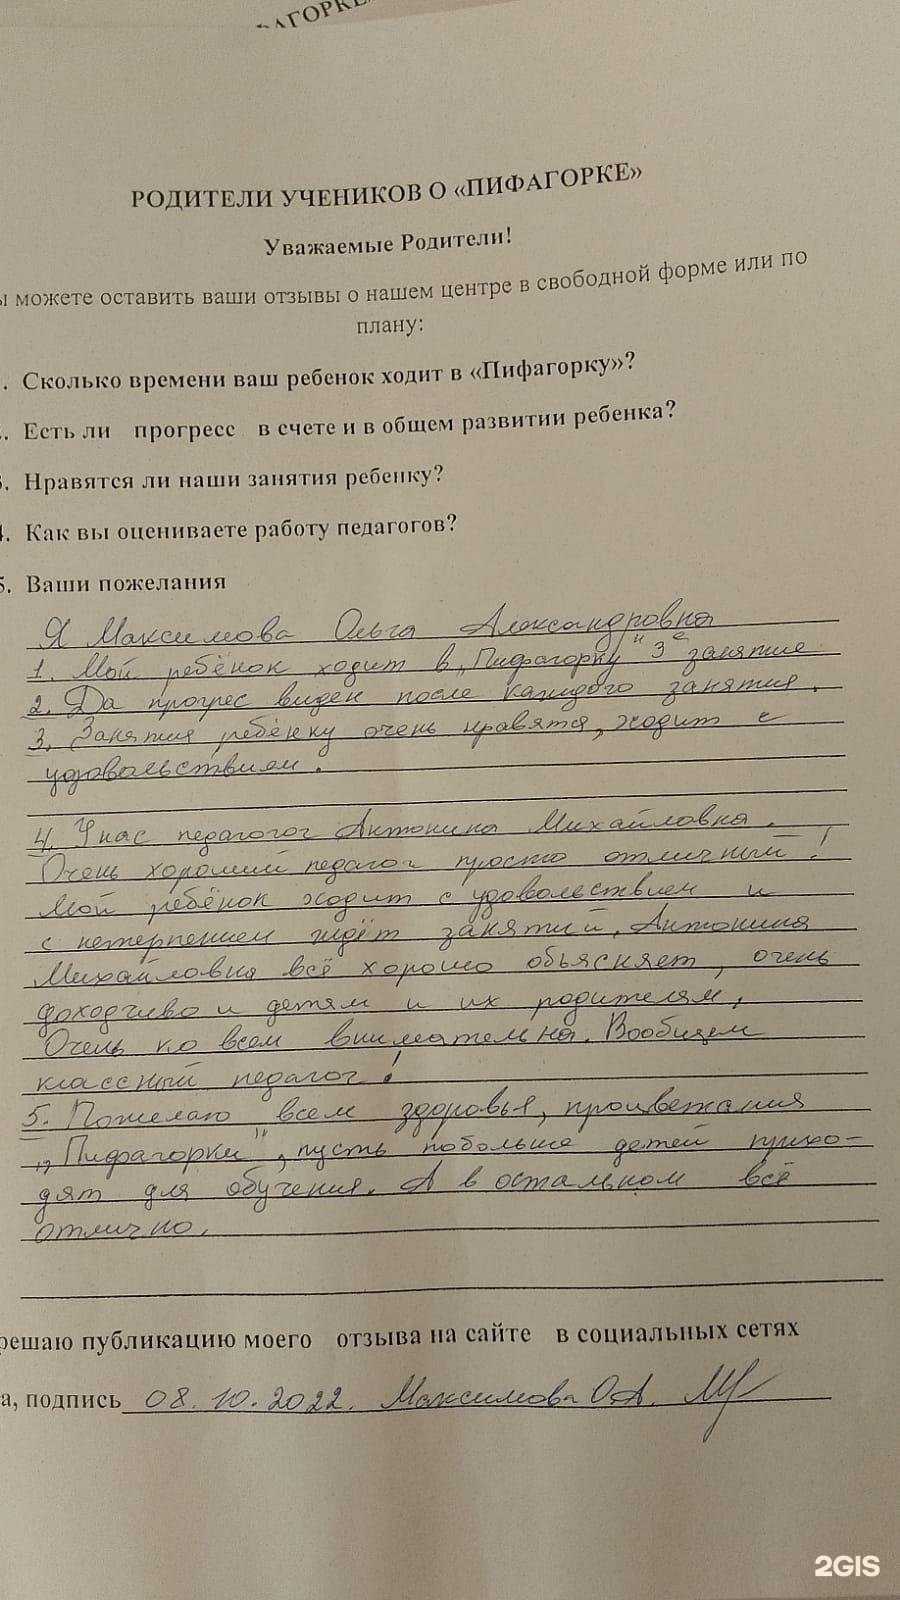 АГОРКЕ
РОДИТЕЛИ УЧЕНИКОВ О «ПИФАГОРКЕ»
Уважаемые Родители!
ы можете оставить ваши отзывы о нашем центре в свободной форме или по
плану:
. Сколько времени ваш ребенок ходит в «Пифагорку»?
. Есть ли прогресс в счете и в общем развитии ребенка?
3. Нравятся ли наши занятия ребенку?
4. Как вы оцениваете работу педагогов?
5. Ваши пожелания
Я Максимова Ольга Александровна
1. Мой ребёнок ходит в „Пифагорку" 3е занятие
2. Да прогрес виден после каждого занятия.
3. Занятия ребёнку очень нравятся, ходит с
удовольствием.
4. У нас педагогог Антонина Михайловна.
Очень хороший педагог просто отличный!
Мой ребёнок ходит с удовольствием и
с нетерпением ждёт занятий. Антонина
Михайловна всё хорошо обьясняет, очень
доходчиво и детям и их родителям,
Очень ко всем внимательна. Вообщем
классный педагог!
5. Пожелаю всем здоровья, процветания
„Пифагорки", пусть побольше детей прихо-
дят для обучения. А в остальном всё
отлично.
решаю публикацию моего отзыва на сайте в социальных сетях
а, подпись 08.10.2022. Максимова О.А.
2GIS